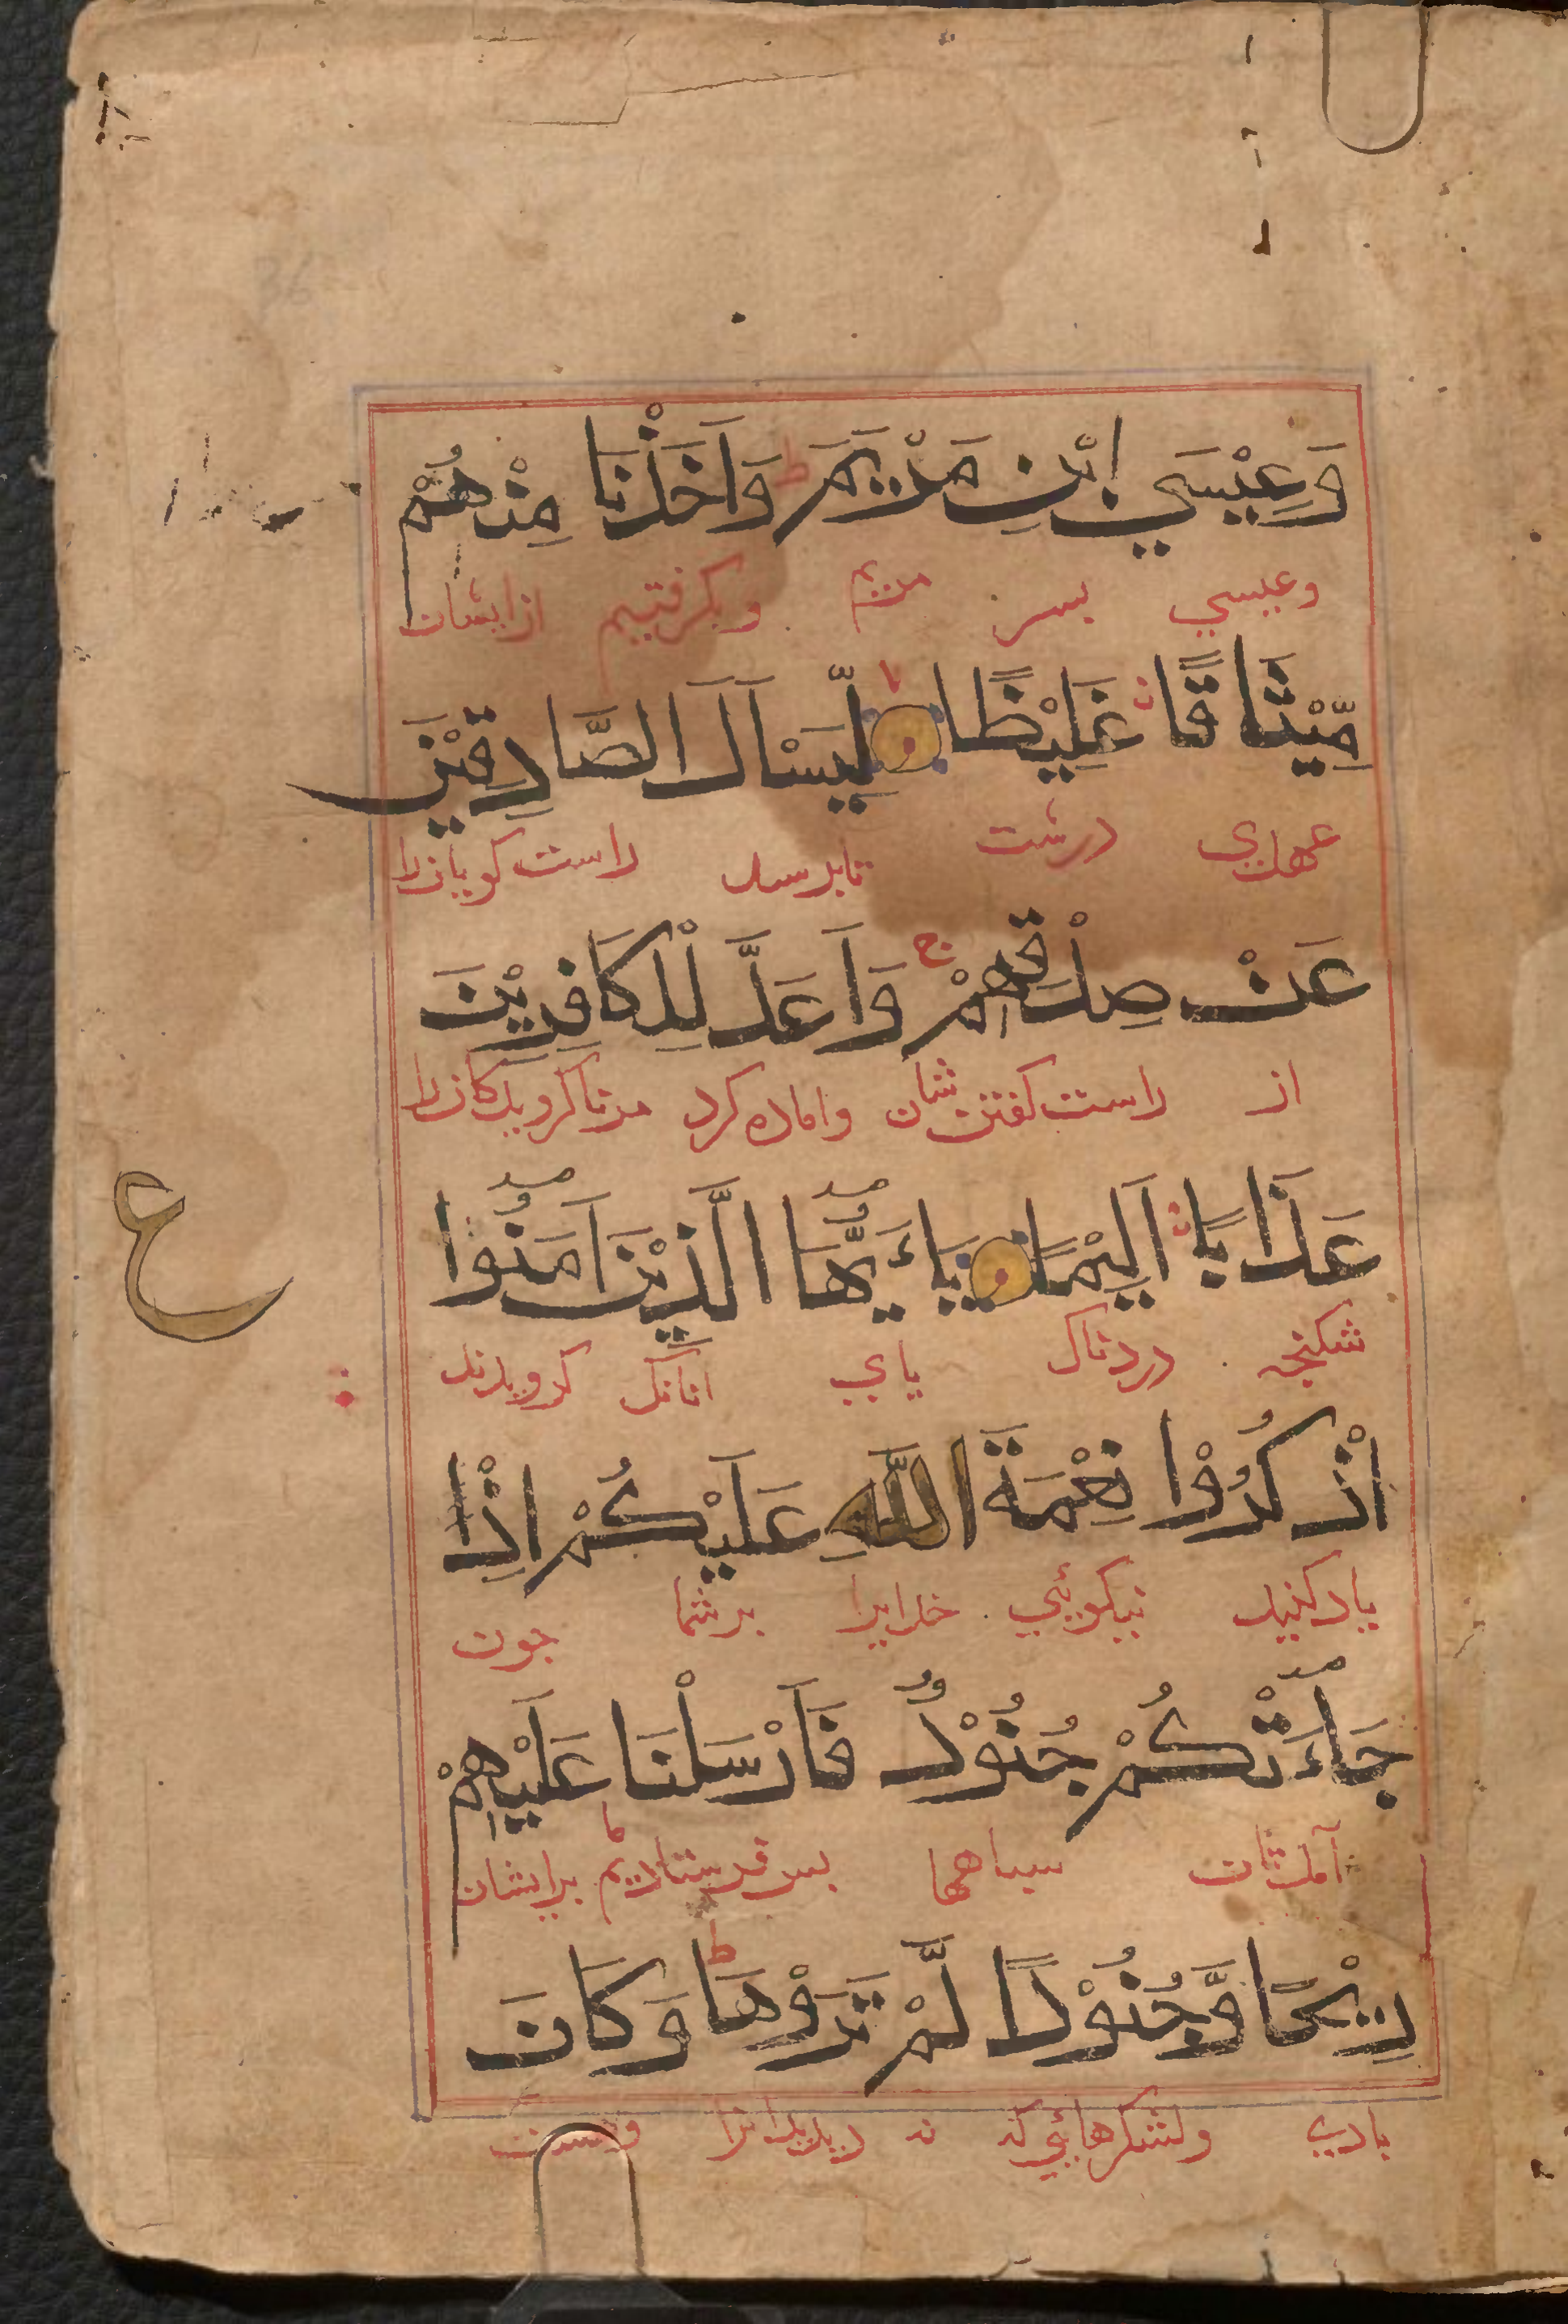 وَعِيْسَي ابْنِ مَرْيَمَ ط وَاَخَذْنَا مِنْهُمْ
وعیسي بسر مریم وبکرفتیم ازایشان
مِّيْثَا قًا غَلِيْظًا لا لِّيَسْاَلَ الصَّادِقِيْنَ
عهدي درشت تابرسد راست کویانرا
عَنْ صِدْقِهِمْ ج وَاَعَدَّ لِلْكَافِرِيْنَ
از راست کفتن شان واماده کرد مرناکرویدکانرا
عَذَابًا اَلِيْمًا يَاءَيُّهَا الَّذِيْنَ اٰمَنُوا
ع
شکنجه دردناک یاي انانک کرویدند
اذْكُرُوْا نِعْمَةَ اللّٰهِ عَلَيْكُمْ اِذْ
یادکنید نیکوئي خدایرا برشما جون
جَاءَتْكُمْ جُنُوْدٌ فَاَرْسَلْنَا عَلَيْهِمْ
آمدشان سباهها بس فرستادیم ما برایشان
رِيْحًا وَّجُنُوْدًا لَّمْ تَرَوْهَا ط وَكَانَ
بادي ولشکرهائي که نه دیدیدانرا وهست